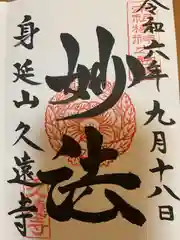 令和六年九月十八日
妙法
身延山久遠寺